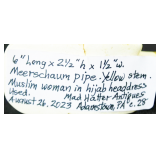 6" Long x 2½"h x 1½"w.
Meerschaum pipe. Yellow stem.
Muslim woman in hijab headdress
Used. Mad Hatter Antiques
August 26, 2023 Adamstown, PA c.28"